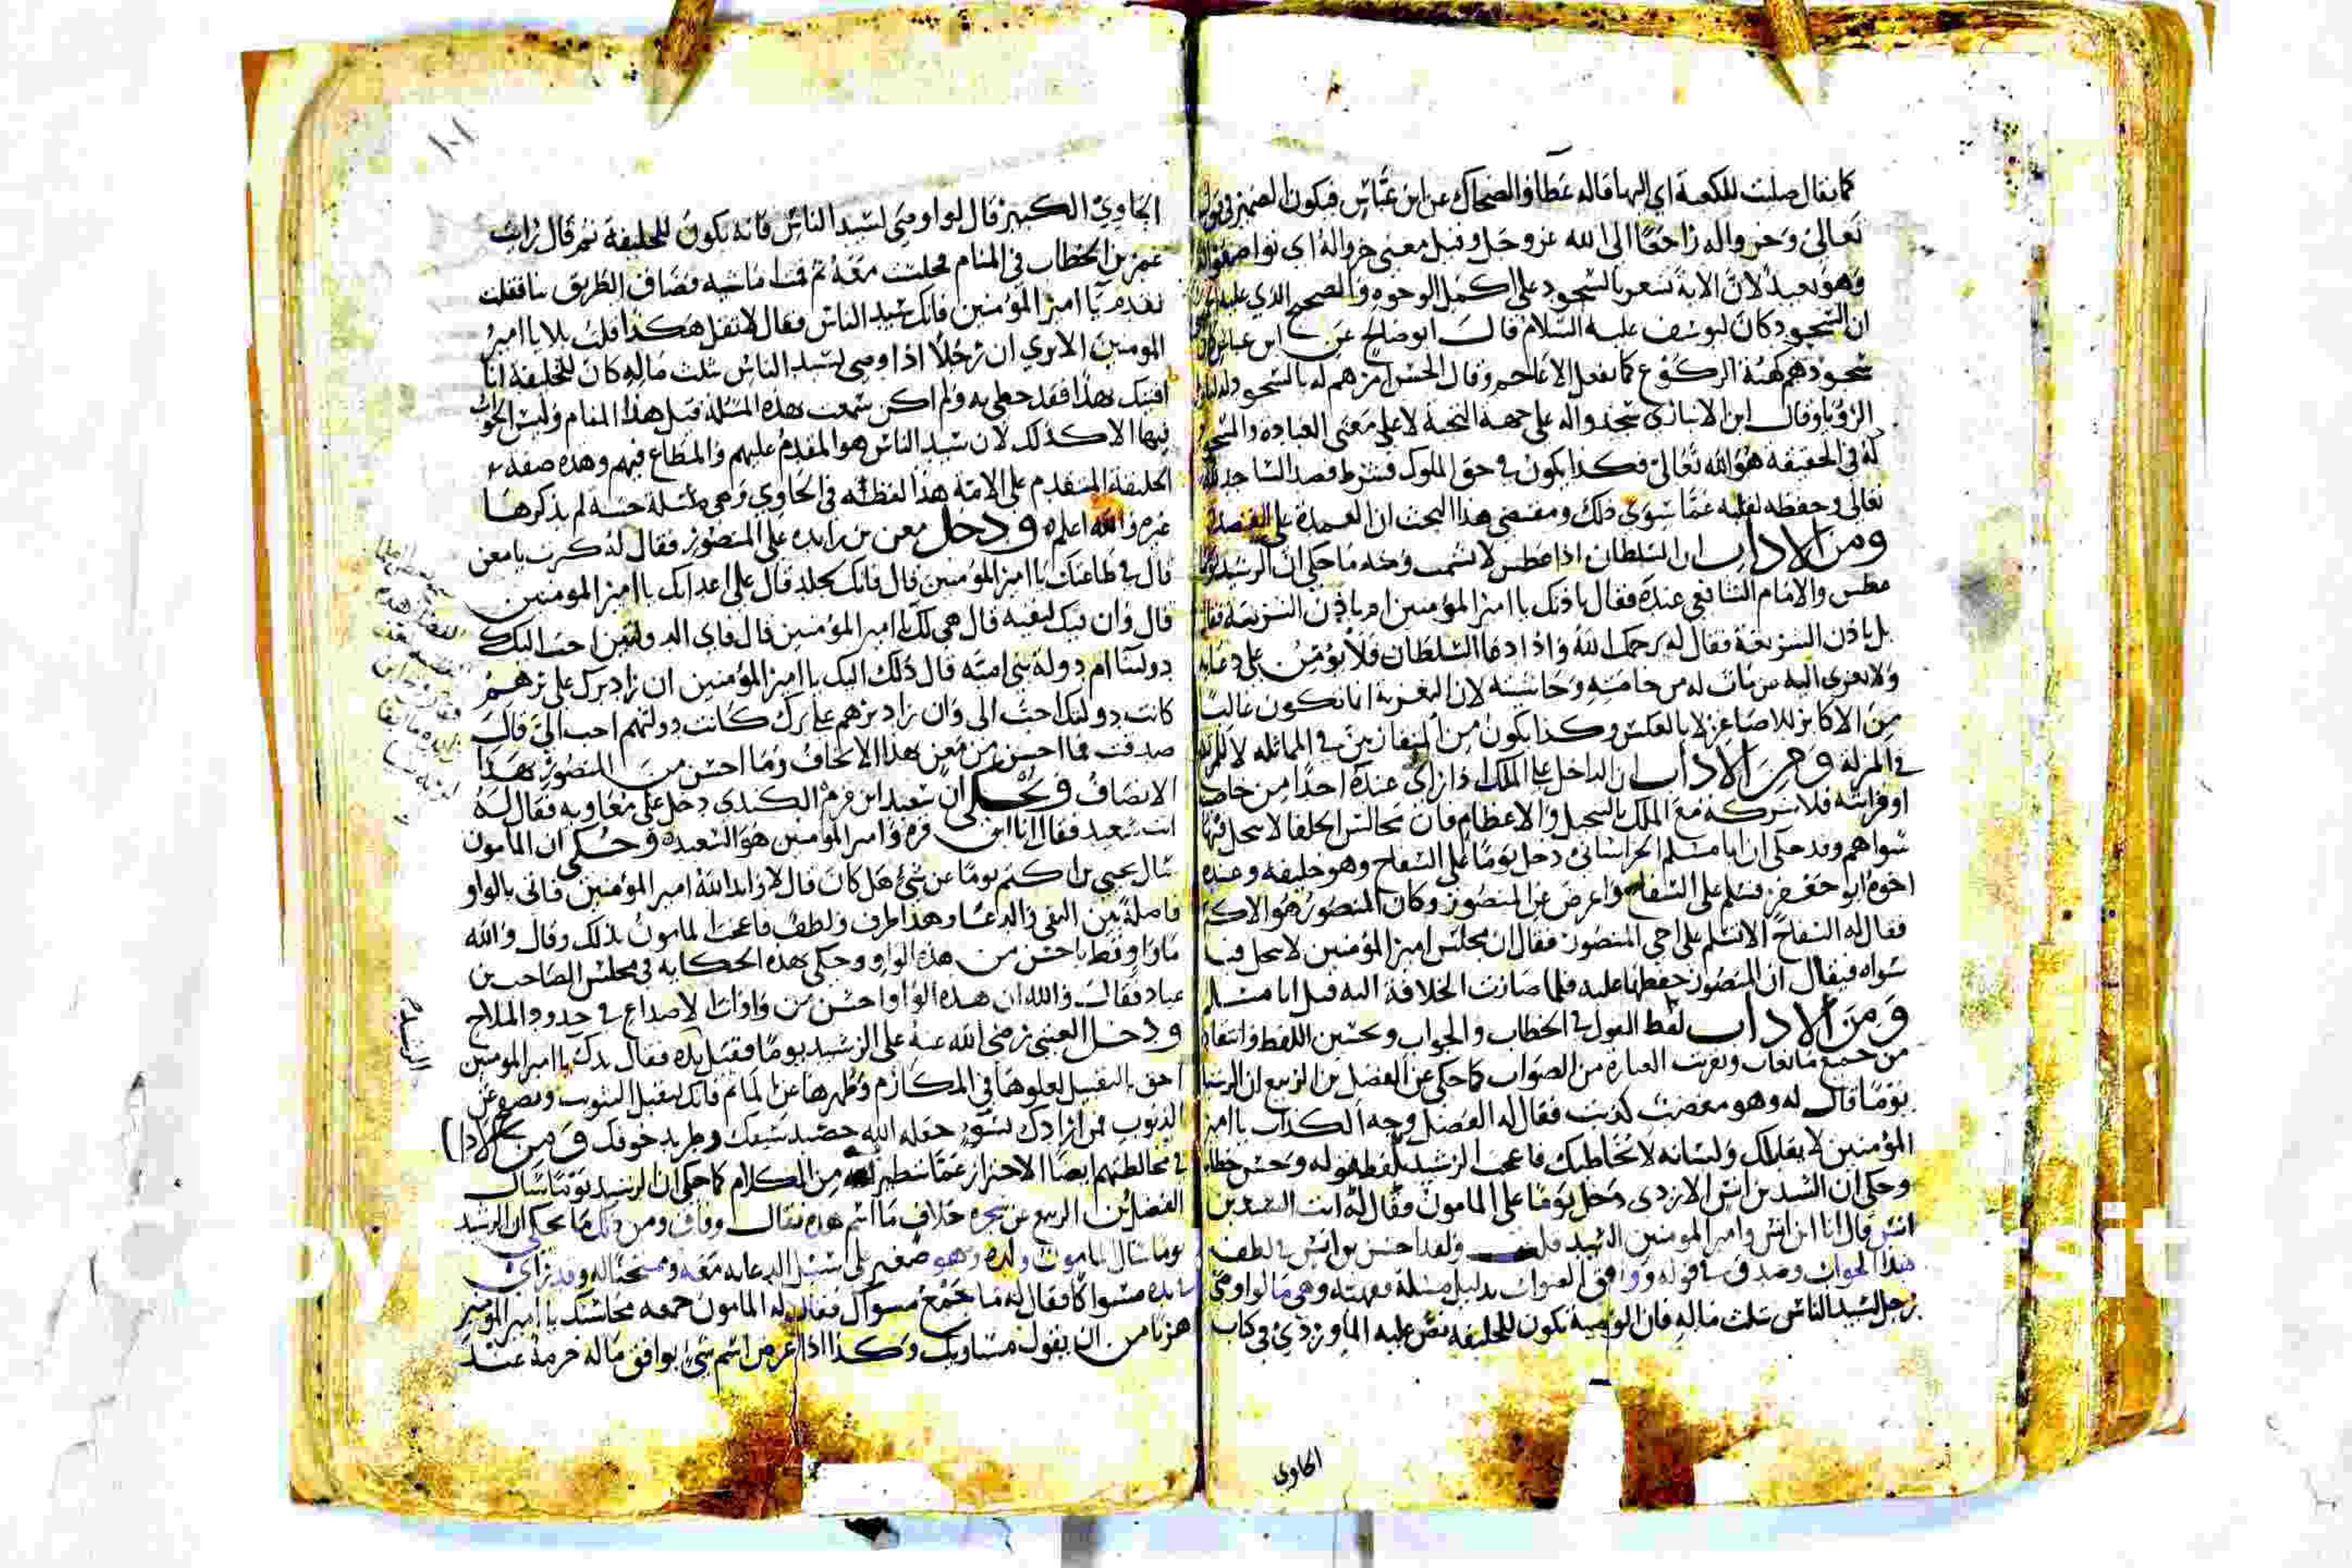 كما يقال صليت للكعبة اي اليها قاله عطا والضحاك عن ابن عباس فيكون الضمير في قوله
تعالى وخروا له راجعا الى الله عز وجل وقيل معنى خروا له اي تواضعوا له
وهو بعيد لان الاية تشعر بالسجود على اكمل الوجوه والصحيح الذي عليه
ان السجود كان ليوسف عليه السلام قال ابو صالح عن ابن عباس كان
سجودهم كهيئة الركوع كما تفعل الاعاجم وقال الحسن امرهم له بالسجود
الرؤيا وقال ابن الانباري سجدوا له على جهة التحية لا على معنى العبادة والسجود
له في الحقيقة هو الله تعالى فكذا يكون في حق الملوك فيشترط قصد الساجد لله
تعالى وحفظه لقلبه عما سوى ذلك ومقتضى هذا البحث ان العمدة على القصد
ومن الاداب ان السلطان اذا عطس لا يشمت وجه ما حكي ان الرشيد
عطس والامام الشافعي عنده فقال باذنك يا امير المؤمنين ام باذن الشريعة فقال
بل باذن الشريعة فقال له يرحمك الله واذا دعا السلطان فلا يؤمن على دعايه
ولا يعزى اليه من مات له من خاصته وحاشيته لان التعزية انما تكون غالبا
من الاكابر للاصاغر لا بالعكس وكذا يكون من المتقاربين في المماثلة لا
في المنزلة ومن الاداب ان الداخل على الملك اذا راى عنده احدا من خاصته
او قرابته فلا يشركه مع الملك بالتبجيل والاعظام فان مجالس الخلفا لا يبجل فيها
سواهم وقد حكي ان ابا مسلم الخراساني دخل يوما على السفاح وهو خليفة وعنده
اخوه ابو جعفر فسلم على السفاح واعرض عن المنصور وكان المنصور هو الاكبر
فقال له السفاح الا تسلم على اخي المنصور فقال ان مجلس امير المؤمنين لا يبجل فيه
سواه فيقال ان المنصور حفظها عليه فلما صارت الخلافة اليه قتل ابا مسلم
ومن الاداب لفظ القول في الخطاب والجواب وتحسين اللفظ وانتقاؤه
من جميع ما يعاب وتقريب العبارة من الصواب كما حكي عن الفضل بن الربيع ان الرشيد
يوما قال له وهو مغضب كذبت فقال له الفضل وجه الكذاب يا امير
المؤمنين لا يقابلك ولسانه لا يخاطبك فاعجب الرشيد بلفظ قوله وحسن خطابه
وحكي ان السيد بن انس الازدي دخل يوما على المامون فقال له انت السيد بن
انس قال انا ابن انس وامير المومنين السيد قلت ولقد احسن بن انس في لطف
هذا الجواب وصدق في قوله ووافق الصواب بدليل مسئلة فقهية وهي ما لو اوصى
رجل لسيد الناس بثلث ماله فان الوصية تكون للخليفة نص عليه الماوردي في كتاب
الحاوي
الحاوي الكبير قال لو اوصى لسيد الناس فانه يكون للخليفة ثم قال رايت
عمر بن الخطاب في المنام فجلست معه ثم قمنا ماشيه فضاق الطريق بنا فقلت
تقدم يا امير المؤمنين فانك سيد الناس فقال لا تقل هكذا قلت بلا يا امير
المومنين الا ترى ان رجلا اذا وصى لسيد الناس بثلث ماله كان للخليفة انا
افتيك بهذا فقد حظي به ولم اكن سمعت بهذه المسئلة قبل هذا المنام وليس الجواب
فيها الا كذلك لان سيد الناس هو المقدم عليهم والمطاع فيهم وهذه صفة
الخليفة المتقدم على الامة هذا لفظه في الحاوي وهي مسئلة حسنة لم يذكرها
غيره والله اعلم ودخل معن بن زايدة على المنصور فقال له كبرت يا معن
قال في طاعتك يا امير المؤمنين قال فانك لجلد قال على اعدايك يا امير المومنين
قال وان فيك لبقية قال هي لك يا امير المؤمنين قال فاي الدولتين احب اليك
دولتنا ام دولة بني امية قال ذلك اليك يا امير المؤمنين ان زاد برك على برهم
كانت دولتك احب الي وان زاد برهم على برك كانت دولتهم احب الي قال
صدقت فما احسن من معن هذا الالحاف وما احسن من المنصور هذا
الانصاف وحكي ان سعيد ابن مرة الكندي دخل على معاوية فقال له
انت سعيد فقال انا ابن مرة وامير المومنين هو السعيد وحكي ان المامون
سال يحيى بن اكثم يوما عن شئ هل كان قال لا وايد الله امير المؤمنين فاتى بالواو
فاصلة بين النفي والدعا وهذا ظرف ولطف فاعجب المامون بذلك وقال والله
ما راو قط باحسن من هذه الواو وحكي بهذه الحكاية في مجلس الصاحب بن
عباد فقال والله ان هذه الواو احسن من واوات الاصداغ في خدود الملاح
ودخل العتبى رضي الله عنه على الرشيد يوما فقبل يده فقال يدك يا امير المومنين
احق بالتقبيل لعلوها في المكارم وطهرها عن المآثم فانك تقيل العيوب وتصفح عن
الذنوب فمن ارادك بسوء جعله الله حصيد سيفك وطريد خوفك ومن الاداب
في مخالطتهم ايضا الاحتراز عما يتطير من الكلام كما حكي ان الرشيد يوما سال
الفضل بن الربيع عن شجرة خلاف ما اسم هذه فقال وفاق ومن ذلك ما يحكى ان الرشيد
يوما سال المامون ولده وهو صغير على سبيل الدعابة معه وممتحنا له وقد راى
بيده مسواكا فقال له ما جمع مسواك فقال له المامون جمعه محاسنك يا امير المومنين
هربا من ان يقول مساويك وكذا اذا عرض اسم شئ يوافق ما له حرمة عند